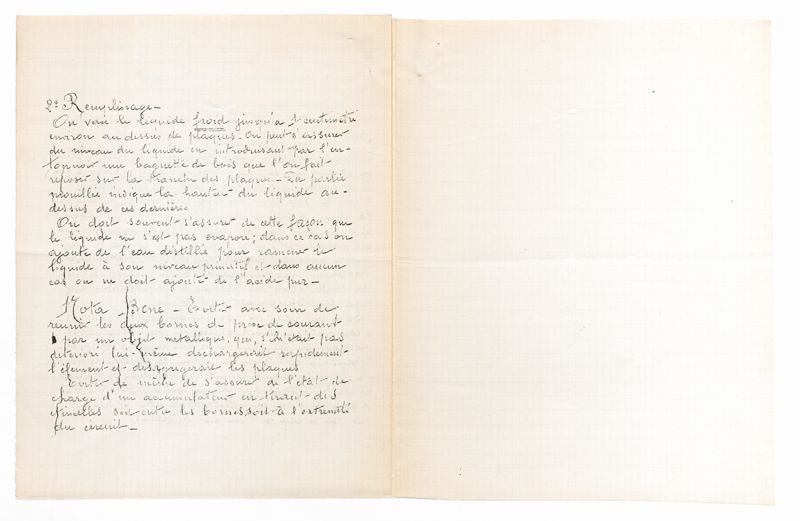 2° Remplissage -
On verse le liquide froid jusqu'à 1 centimètre
environ au dessus des plaques. On peut s'assurer
du niveau du liquide en introduisant par l'en-
tonnoir une baguette de bois que l'on fait
reposer sur la tranche des plaques. - La partie
mouillée indique la hauteur du liquide au-
dessus de ces dernières
On doit souvent s'assurer de cette façon que
le liquide ne s'est pas evaporé; dans ce cas on
ajoute de l'eau distillée pour ramener le
liquide à son niveau primitif et dans aucun
cas on ne doit ajouter de l'acide pur -
Nota Bene - Eviter avec soin de
reunir les deux bornes de prise de courant
par un objet metallique, qui, s'il n'etait pas
deterioré lui-même dechargerait rapidement
l'élément et desagregerait les plaques
Eviter de même de s'assurer de l'état de
charge d'un accumulateur en tirant des
etincelles soit entre les bornes, soit à l'extremité
du circuit -